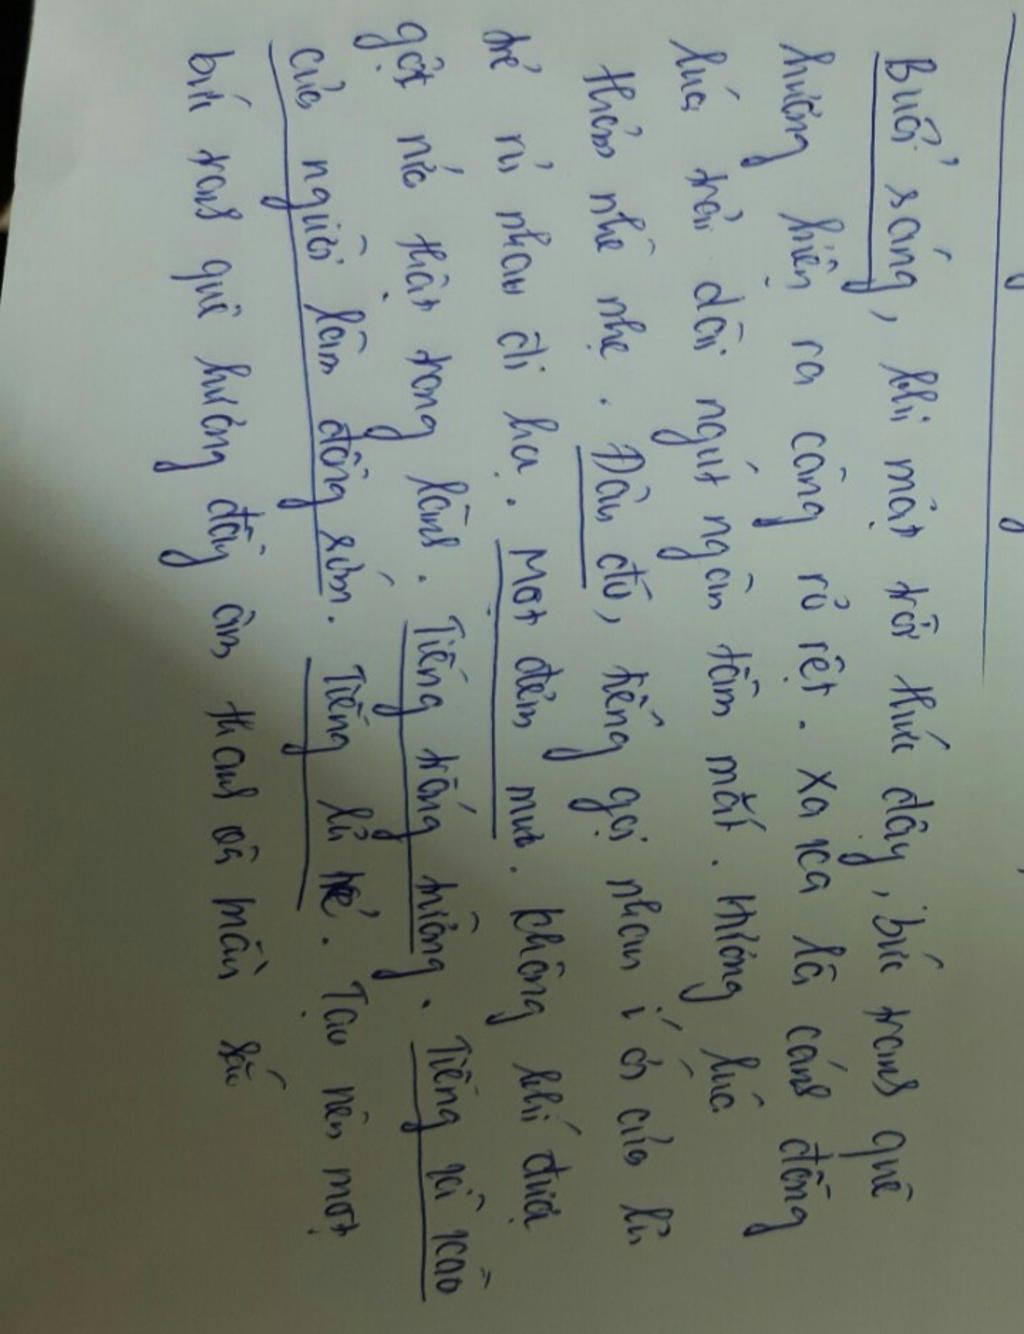 Buổi sáng, khi mặt trời thức dậy, bức tranh quê
hương hiện ra càng rõ rệt. Xa xa là cánh đồng
lúa trải dài ngút ngàn tầm mắt. Hương lúa
thơm nhè nhẹ. Đâu đó, tiếng gọi nhau í ới của lũ
trẻ rủ nhau đi học. Một đêm mưa. Không khí được
gột rửa thật trong lành. Tiếng trống trường. Tiếng rì rào
của người làm đồng sớm. Tiếng lũ trẻ. Tạo nên một
bức tranh quê hương đầy âm thanh và màu sắc